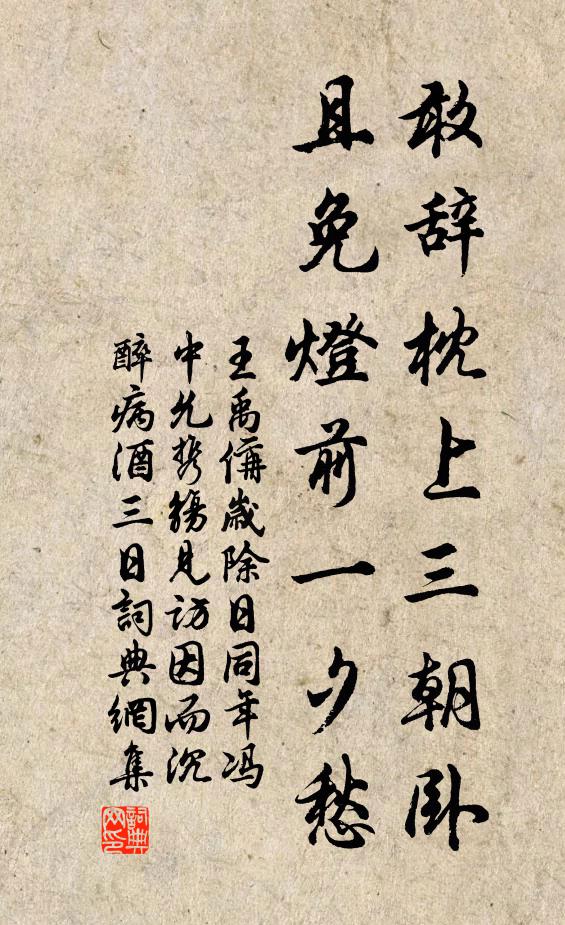 敢辞枕上三朝卧
且免燈前一夕愁
王禹偁歲除日同年冯
中允携觞見訪因而沉
醉病酒三日詞典網集
詞典网印